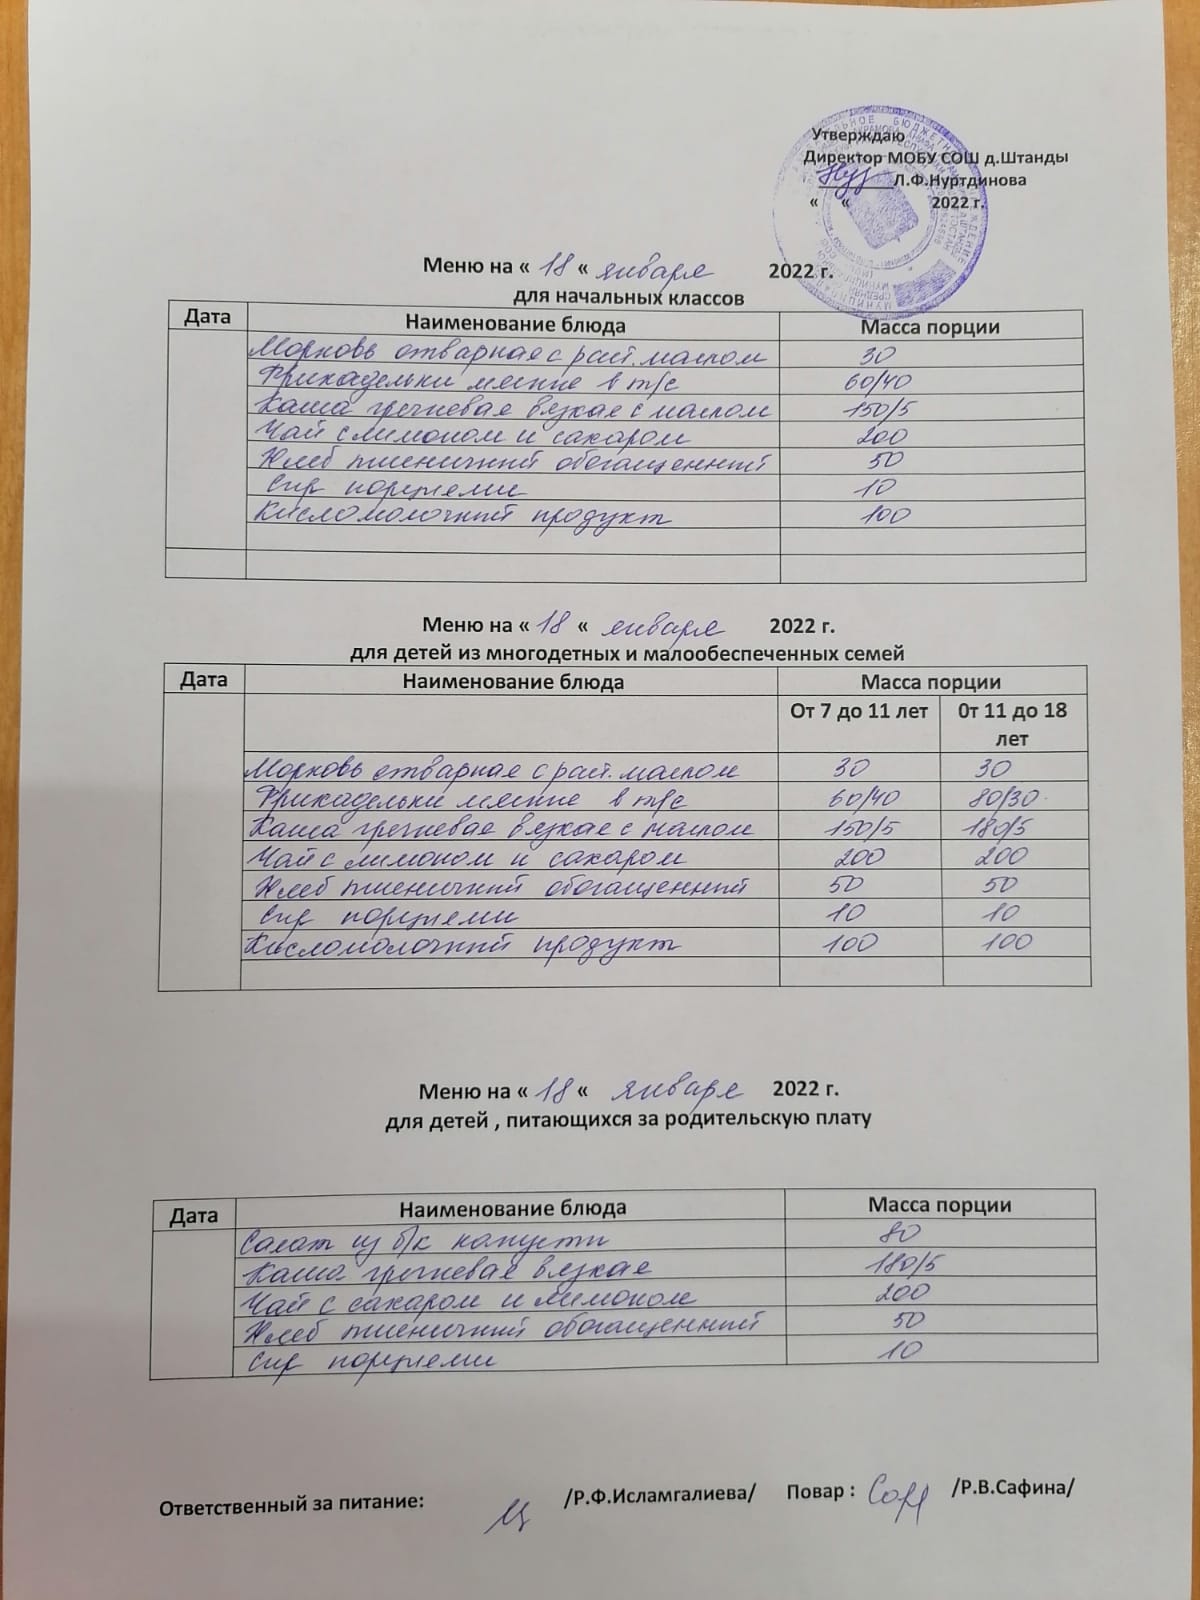 Утверждаю
Директор МОБУ СОШ д.Штанды
Л.Ф.Нуртдинова
« « 2022 г.
Меню на « 18 « января 2022 г.
для начальных классов
Дата Наименование блюда Масса порции
Морковь отварная с раст. маслом 30
Фрикадельки мясные в т/с 60/40
Каша гречневая вязкая с маслом 150/5
Чай с лимоном и сахаром 200
Хлеб пшеничный обогащенный 50
Сыр порциями 10
Кисломолочный продукт 100
Меню на « 18 « января 2022 г.
для детей из многодетных и малообеспеченных семей
Дата Наименование блюда Масса порции
От 7 до 11 лет 0т 11 до 18
лет
Морковь отварная с раст. маслом 30 30
Фрикадельки мясные в т/с 60/40 80/30
Каша гречневая вязкая с маслом 150/5 180/5
Чай с лимоном и сахаром 200 200
Хлеб пшеничный обогащенный 50 50
Сыр порциями 10 10
Кисломолочный продукт 100 100
Меню на « 18 « января 2022 г.
для детей , питающихся за родительскую плату
Дата Наименование блюда Масса порции
Салат из б/к капусты 80
Каша гречневая вязкая 180/5
Чай с сахаром и лимоном 200
Хлеб пшеничный обогащенный 50
Сыр порциями 10
Ответственный за питание: /Р.Ф.Исламгалиева/ Повар : /Р.В.Сафина/